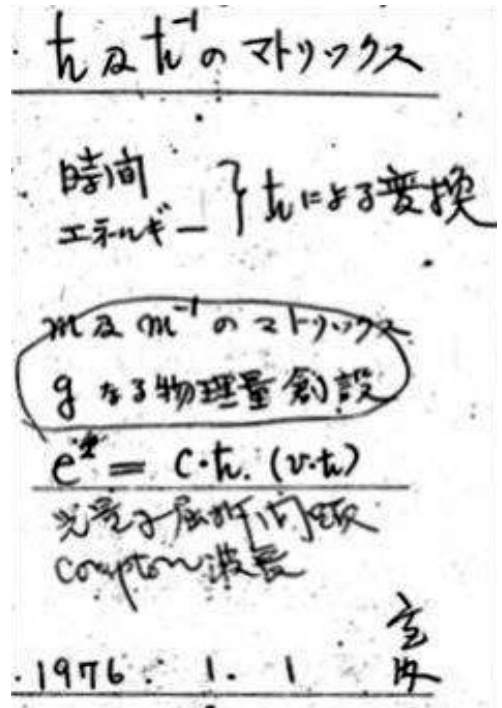 ℏ及ℏ⁻¹のマトリックス
時間
エネルギー } ℏによる変換
m及m⁻¹のマトリックス
gなる物理量創設
e² = c·ℏ. (v·ℏ)
光量子屈折問題
Compton波長
1976. 1. 1